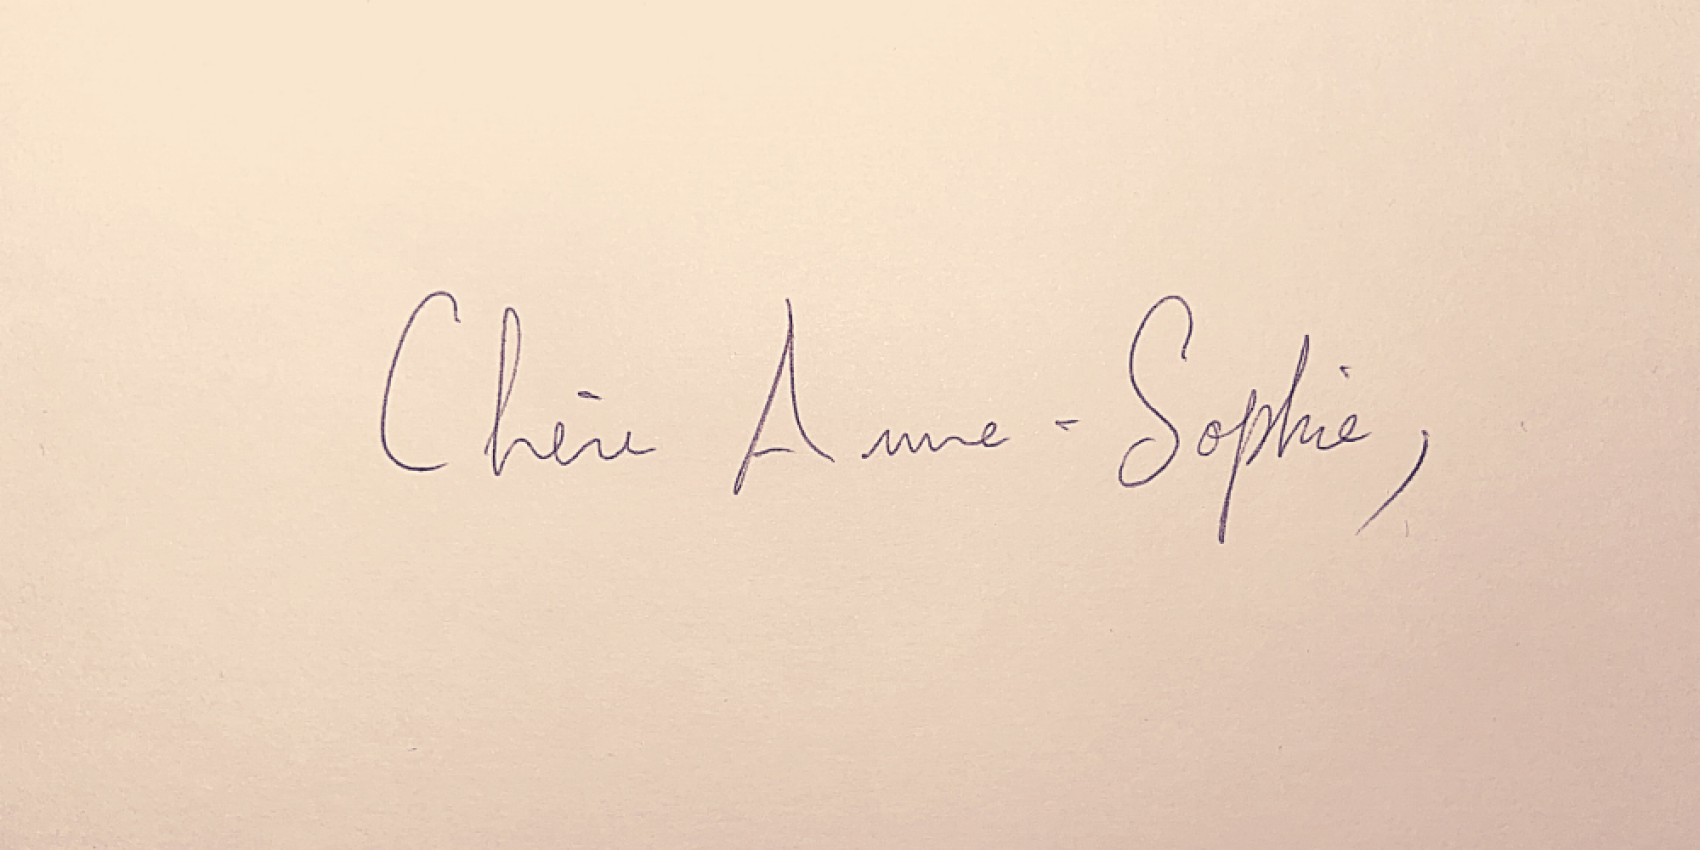 Chère Anne-Sophie,